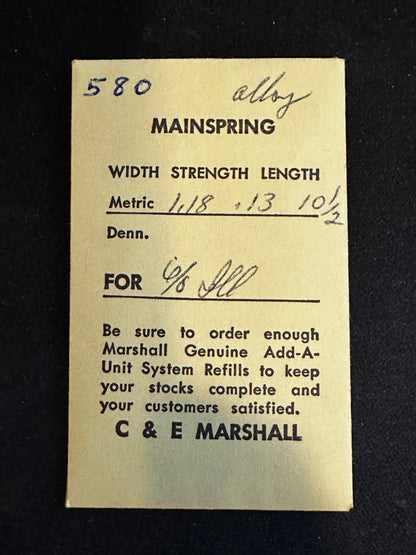 580 alloy
MAINSPRING
WIDTH STRENGTH LENGTH
Metric 1.18 .13 10 1/2
Denn.
FOR 6/0 Ill
Be sure to order enough
Marshall Genuine Add-A-
Unit System Refills to keep
your stocks complete and
your customers satisfied.
C & E MARSHALL